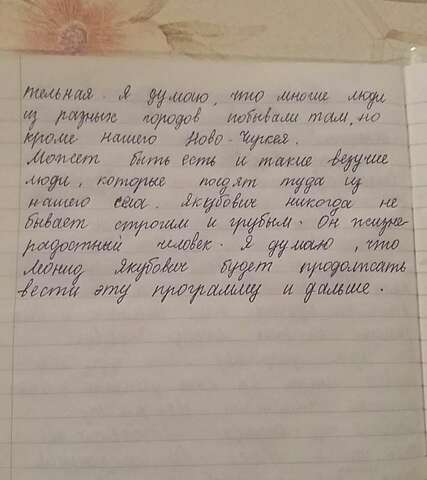 тельная. Я думаю, что многие люди
из разных городов побывали там, но
кроме нашего Ново-Чуркея.
Может быть есть и такие везучие
люди, которые поедят туда из
нашего села. Якубович никогда не
бывает строгим и грубым. Он жизне-
радостный человек. Я думаю, что
Леонид Якубович будет продолжать
вести эту программу и дальше.